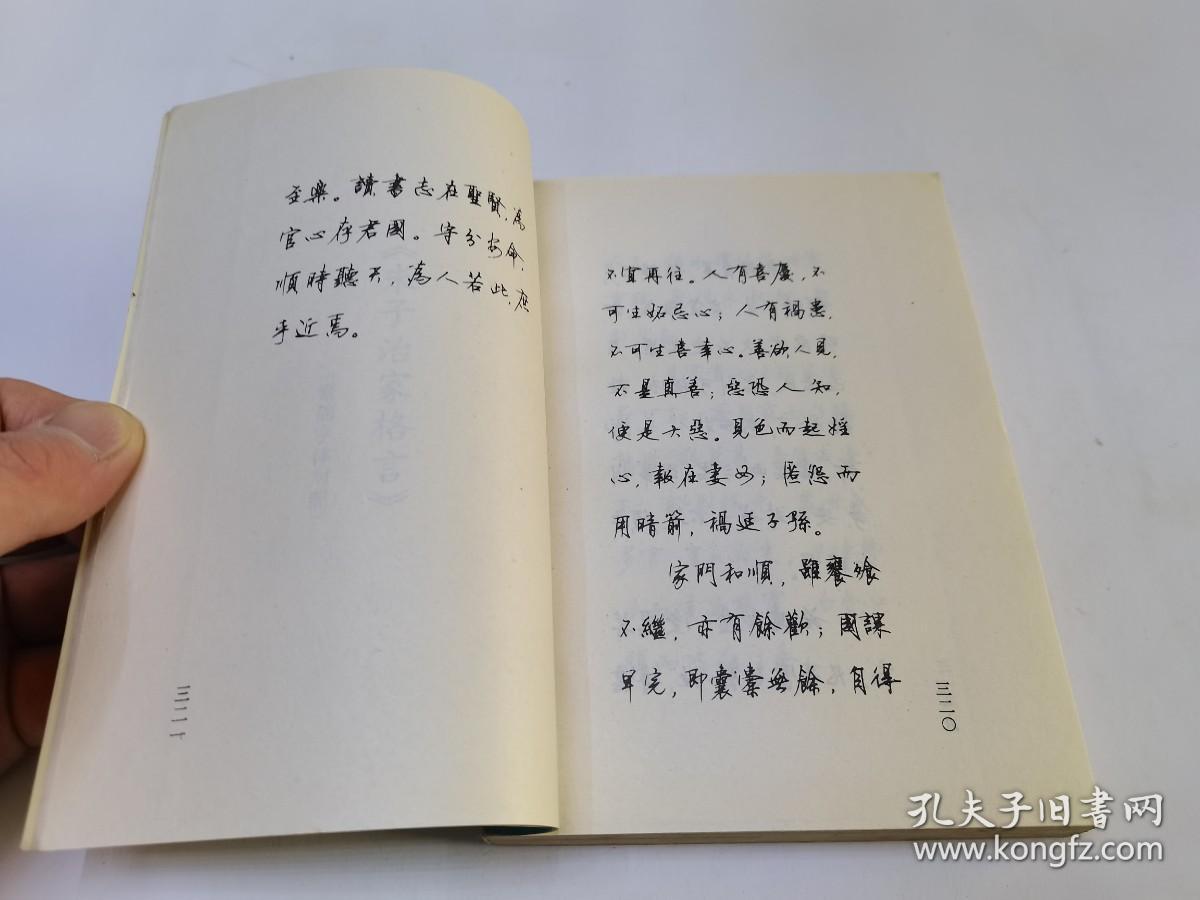 不宜再往。人有喜慶，不
可生妬忌心；人有禍患，
不可生喜幸心。善欲人見，
不是真善；惡恐人知，
便是大惡。見色而起婬
心，報在妻女；匿怨而
用暗箭，禍延子孫。
家門和順，雖饔飧
不繼，亦有餘歡；國課
早完，即囊橐無餘，自得
三二〇
至樂。讀書志在聖賢，為
官心存君國。守分安命，
順時聽天，為人若此，庶
乎近焉。
三二一
孔夫子旧书网
www.kongfz.com